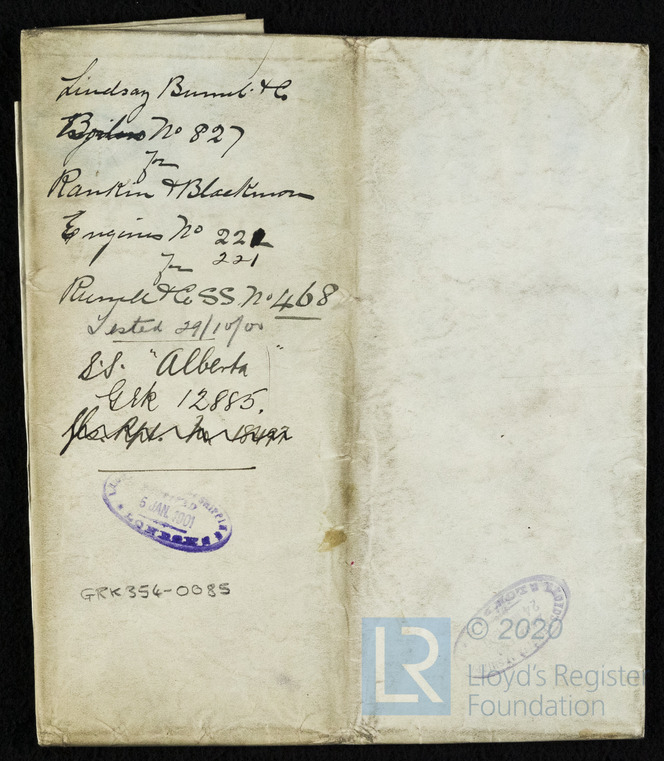 Lindsay Burnet & Co
Boilers No 827
for
Rankin & Blackmore
Engines No 222
221
for
Russell & Co SS. No 468
Tested 29/10/00
S.S. "Alberta"
Grk 12885.
Rpt. No
5 JAN. 1901
GRK354-0085
LR © 2020
Lloyd's Register
Foundation